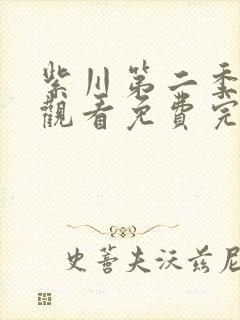 紫川第二季
觀看免費完
史蒂夫沃茲尼